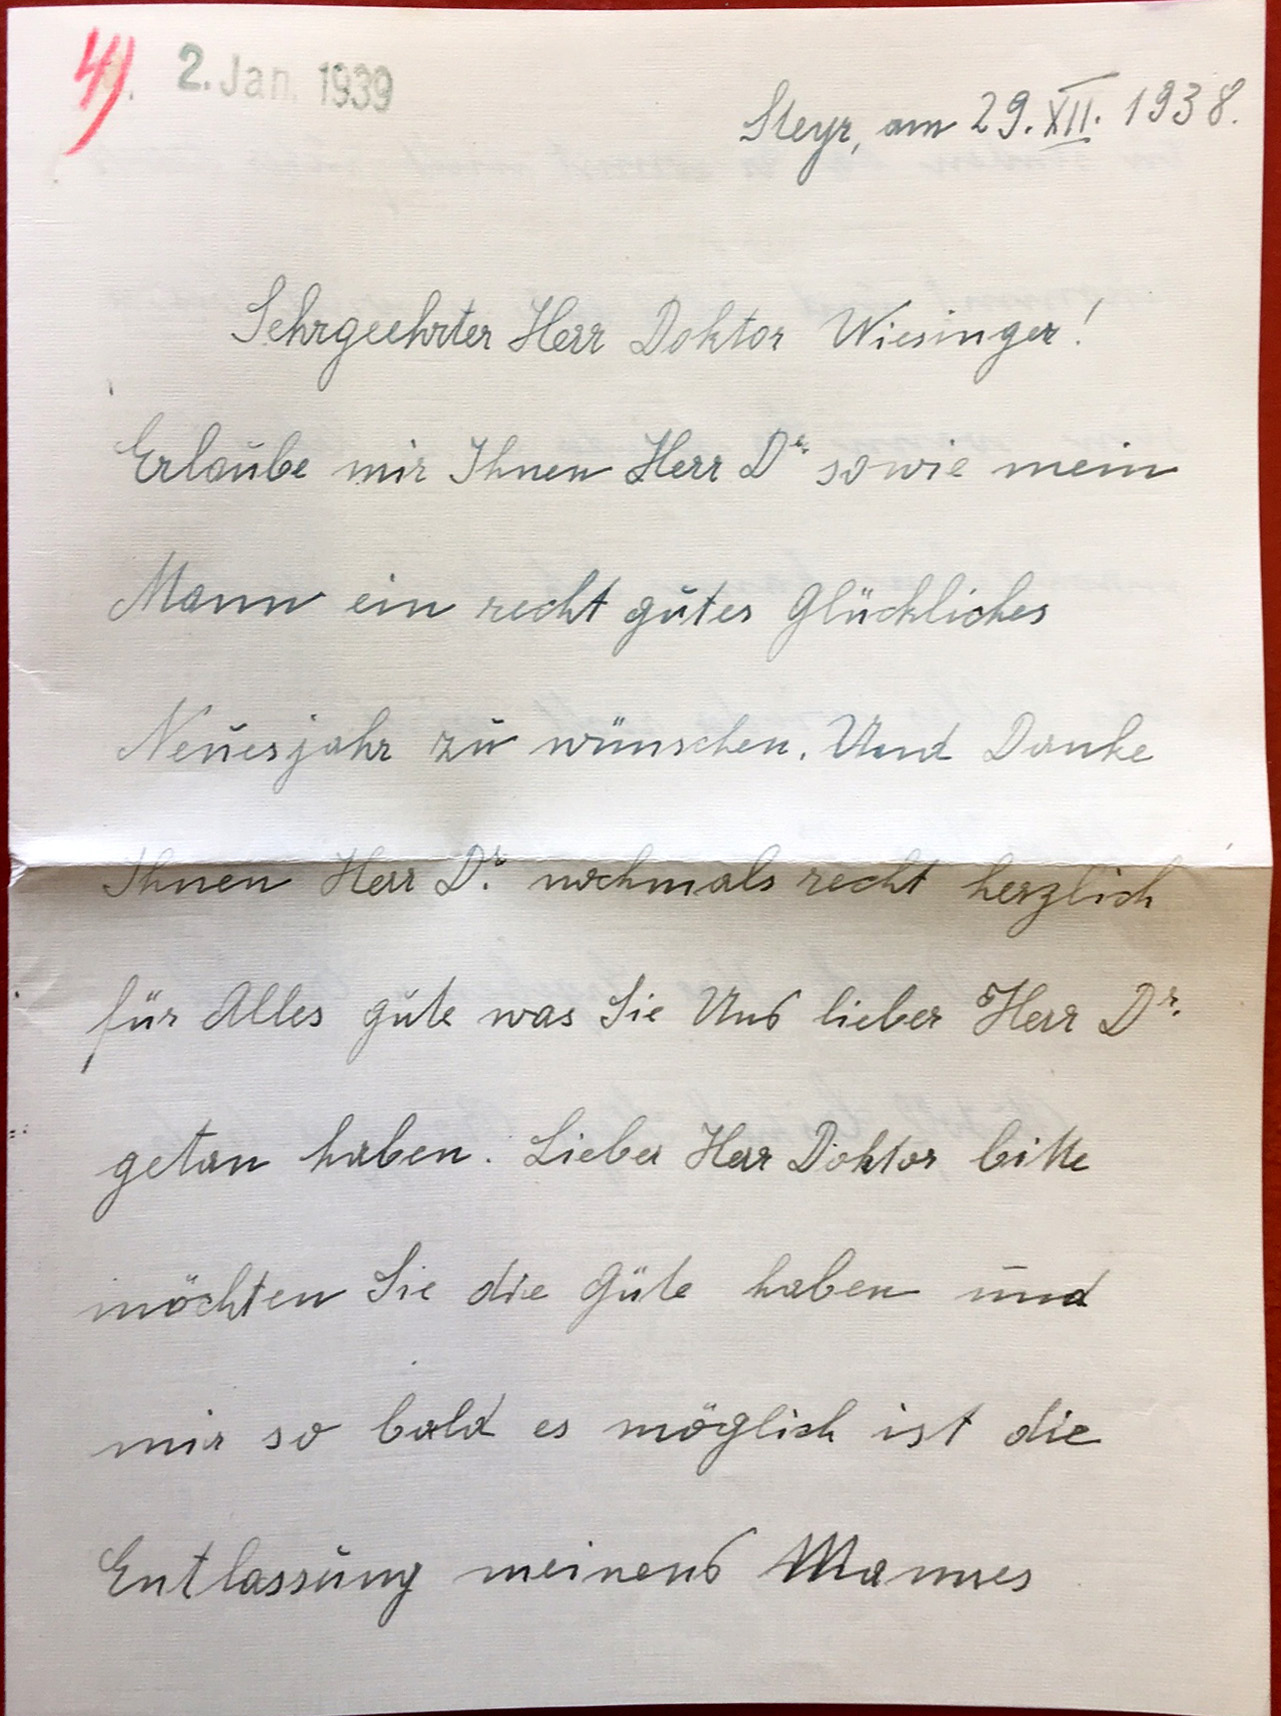 4).
2. Jan. 1939
Steyr, am 29. XII. 1938.
Sehrgeehrter Herr Doktor Wiesinger!
Erlaube mir Ihnen Herr Dr. sowie mein
Mann ein recht gutes Glückliches
Neuesjahr zu wünschen. Und Danke
Ihnen Herr Dr. nochmals recht herzlich
für Alles gute was Sie Uns lieber Herr Dr.
getan haben. Lieber Herr Doktor bitte
möchten Sie die Güte haben und
mir so bald es möglich ist die
Entlassung meinens Mannes